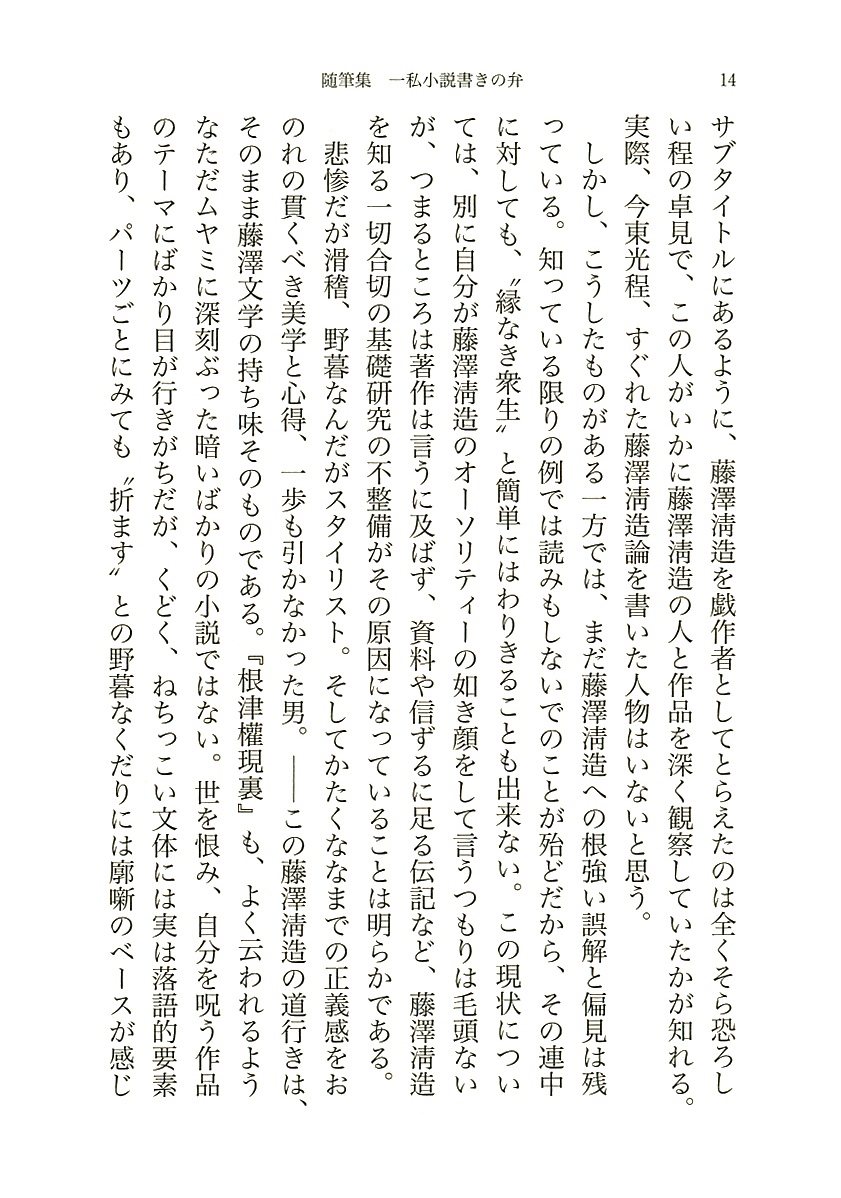 随筆集　一私小説書きの弁
14
サブタイトルにあるように、藤澤淸造を戯作者としてとらえたのは全くそら恐ろし
い程の卓見で、この人がいかに藤澤淸造の人と作品を深く観察していたかが知れる。
実際、今東光程、すぐれた藤澤淸造論を書いた人物はいないと思う。
　しかし、こうしたものがある一方では、まだ藤澤淸造への根強い誤解と偏見は残
っている。知っている限りの例では読みもしないでのことが殆どだから、その連中
に対しても、〝縁なき衆生〟と簡単にはわりきることも出来ない。この現状につい
ては、別に自分が藤澤淸造のオーソリティーの如き顔をして言うつもりは毛頭ない
が、つまるところは著作は言うに及ばず、資料や信ずるに足る伝記など、藤澤淸造
を知る一切合切の基礎研究の不整備がその原因になっていることは明らかである。
　悲惨だが滑稽、野暮なんだがスタイリスト。そしてかたくななまでの正義感をお
のれの貫くべき美学と心得、一歩も引かなかった男。――この藤澤淸造の道行きは、
そのまま藤澤文学の持ち味そのものである。『根津權現裏』も、よく云われるよう
なただムヤミに深刻ぶった暗いばかりの小説ではない。世を恨み、自分を呪う作品
のテーマにばかり目が行きがちだが、くどく、ねちっこい文体には実は落語的要素
もあり、パーツごとにみても〝折ます〟との野暮なくだりには廓噺のベースが感じ